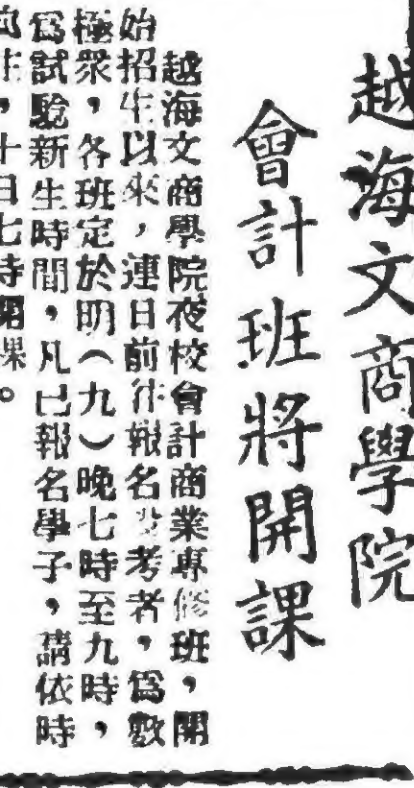 越海文商學院
會計班將開課
越海文商學院夜校會計商業專修班，開
始招生以來，連日前往報名投考者，爲數
極衆，各班定於明（九）晚七時至九時，
爲試驗新生時間，凡已報名學子，請依時
前往，十日七時開課。